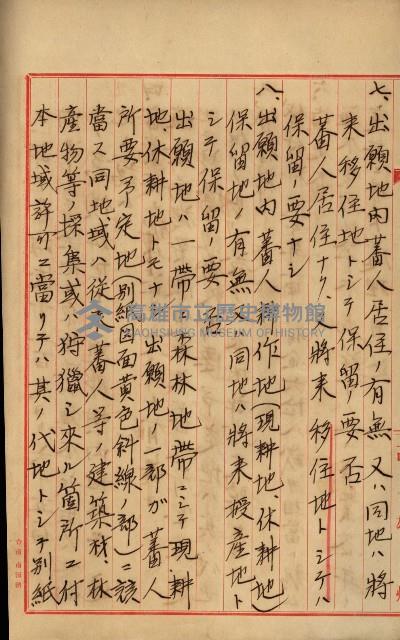 七、出願地内蕃人居住ノ有無又ハ同地ハ將
来移住地トシテ保留ノ要否
蕃人居住ナク、將来移住地トシテハ
保留ノ要ナシ
八、出願地内蕃人耕作地(現耕地、休耕地)
保留地ノ有無 同地ハ將来授産地ト
シテ保留ノ要否
出願地ハ一帶ノ森林地帶ニシテ現耕
地、休耕地トモナ 出願地ノ一部ガ蕃人
所要予定地(別紙図面黄色斜線ノ部)ニ該
當ス同地域ハ従来蕃人等ノ建築材、林
産物等ノ採集或ハ狩獵シ來ル箇所ニ付
本地域許可ニ當リテハ其ノ代地トシテ別紙
高雄市立歷史博物館
KAOHSIUNG MUSEUM OF HISTORY